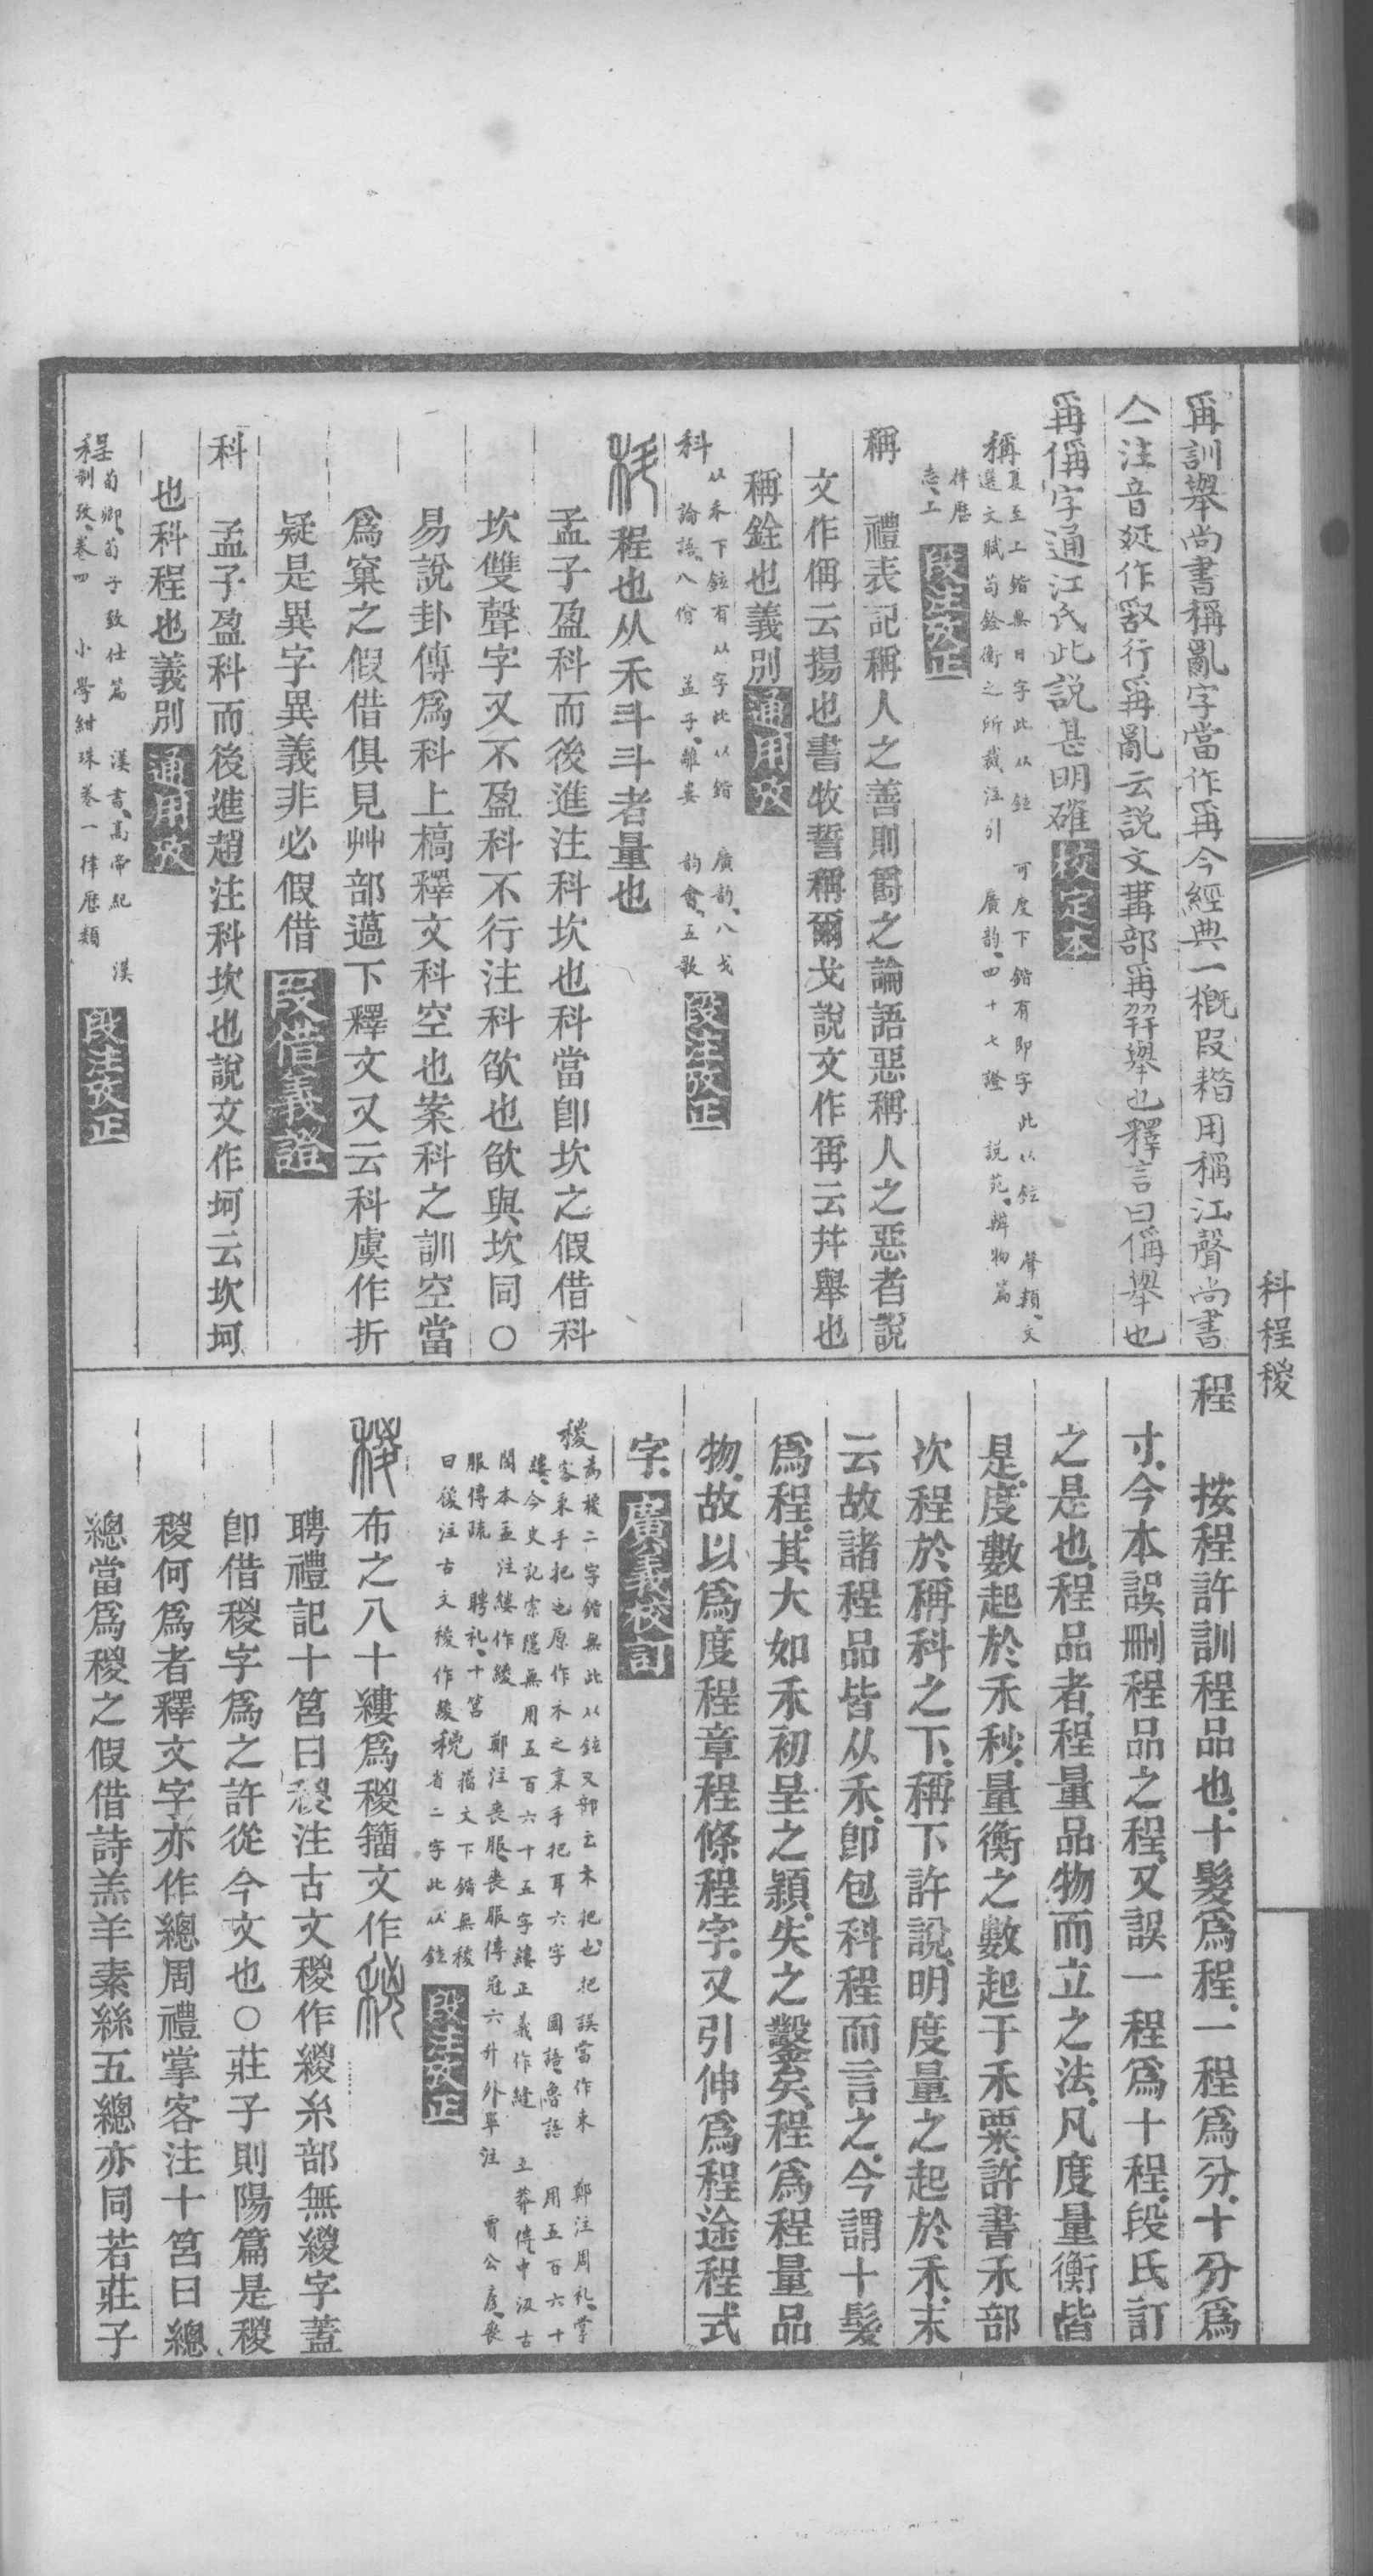 科程稯
爯訓舉尚書稱亂字當作爯今經典一概叚借用稱江聲尚書
亼一注音疏作敢行爯亂云説文冓部爯幷舉也釋言曰偁舉也
爯偁字通江氏此説甚明確校定本
稱夏至上鍇無日字此从鉉 可度下鍇有即字此以鉉 聲類、文
選文賦苟銓衡之所裁注引 廣韵、四十七證 説苑、辨物篇
律歷
志、上 段注攷正
稱 禮表記稱人之善則爵之論語惡稱人之惡者說
文作偁云揚也書牧誓稱爾戈說文作爯云幷舉也
稱銓也義別通用攷
科从禾下鉉有从字此以鍇 廣韵、八戈
論語、八佾 孟子、離婁 韵會、五歌 段注攷正
科程也从禾斗斗者量也
孟子盈科而後進注科坎也科當卽坎之假借科
坎雙聲字又不盈科不行注科欿也欿與坎同〇
易說卦傳爲科上槁釋文科空也案科之訓空當
爲窠之假借俱見艸部薖下釋文又云科虞作折
疑是異字異義非必假借叚借義證
科 孟子盈科而後進趙注科坎也說文作坷云坎坷
也科程也義別通用攷
程荀卿、荀子致仕篇 漢書、高帝紀 漢
制攷、卷四 小學紺珠卷一律歷類 段注攷正
程 按程許訓程品也、十髮爲程、一程爲分、十分爲
寸、今本誤刪程品之程、又誤一程爲十程、段氏訂
之是也、程品者、程量品物而立之法、凡度量衡皆
是、度數起於禾秒、量衡之數起于禾粟、許書禾部
次程於稱科之下、稱下許説、明度量之起於禾、末
云故諸程品皆从禾、卽包科程而言之、今謂十髮
爲程、其大如禾初呈之穎、失之鑿矣、程爲程量品
物、故以爲度程章程條程字、又引伸爲程途程式
字、廣義校訂
稯爲稯二字鍇無此以鉉又部云禾把也把誤當作束 鄭注周礼、掌
客秉手把也原作禾之秉手把耳六字 國語、魯語 用五百六十
縷、今史記索隱無用五百六十五字縷正義作縫 王莽傳、中汲古
閣本孟注縷作緵 鄭注喪服、喪服傳冠六升外畢注 賈公彦、喪
服傳疏 聘礼、十筥
曰後注古文稯作緵稅籒文下鍇無稯
省二字此从鉉 段注攷正
稯布之八十縷爲稯籒文作
聘禮記十筥曰稯注古文稯作緵糸部無緵字蓋
卽借稯字爲之許從今文也〇莊子則陽篇是稯
稯何爲者釋文字亦作總周禮掌客注十筥曰總
總當爲稯之假借詩羔羊素絲五總亦同若莊子